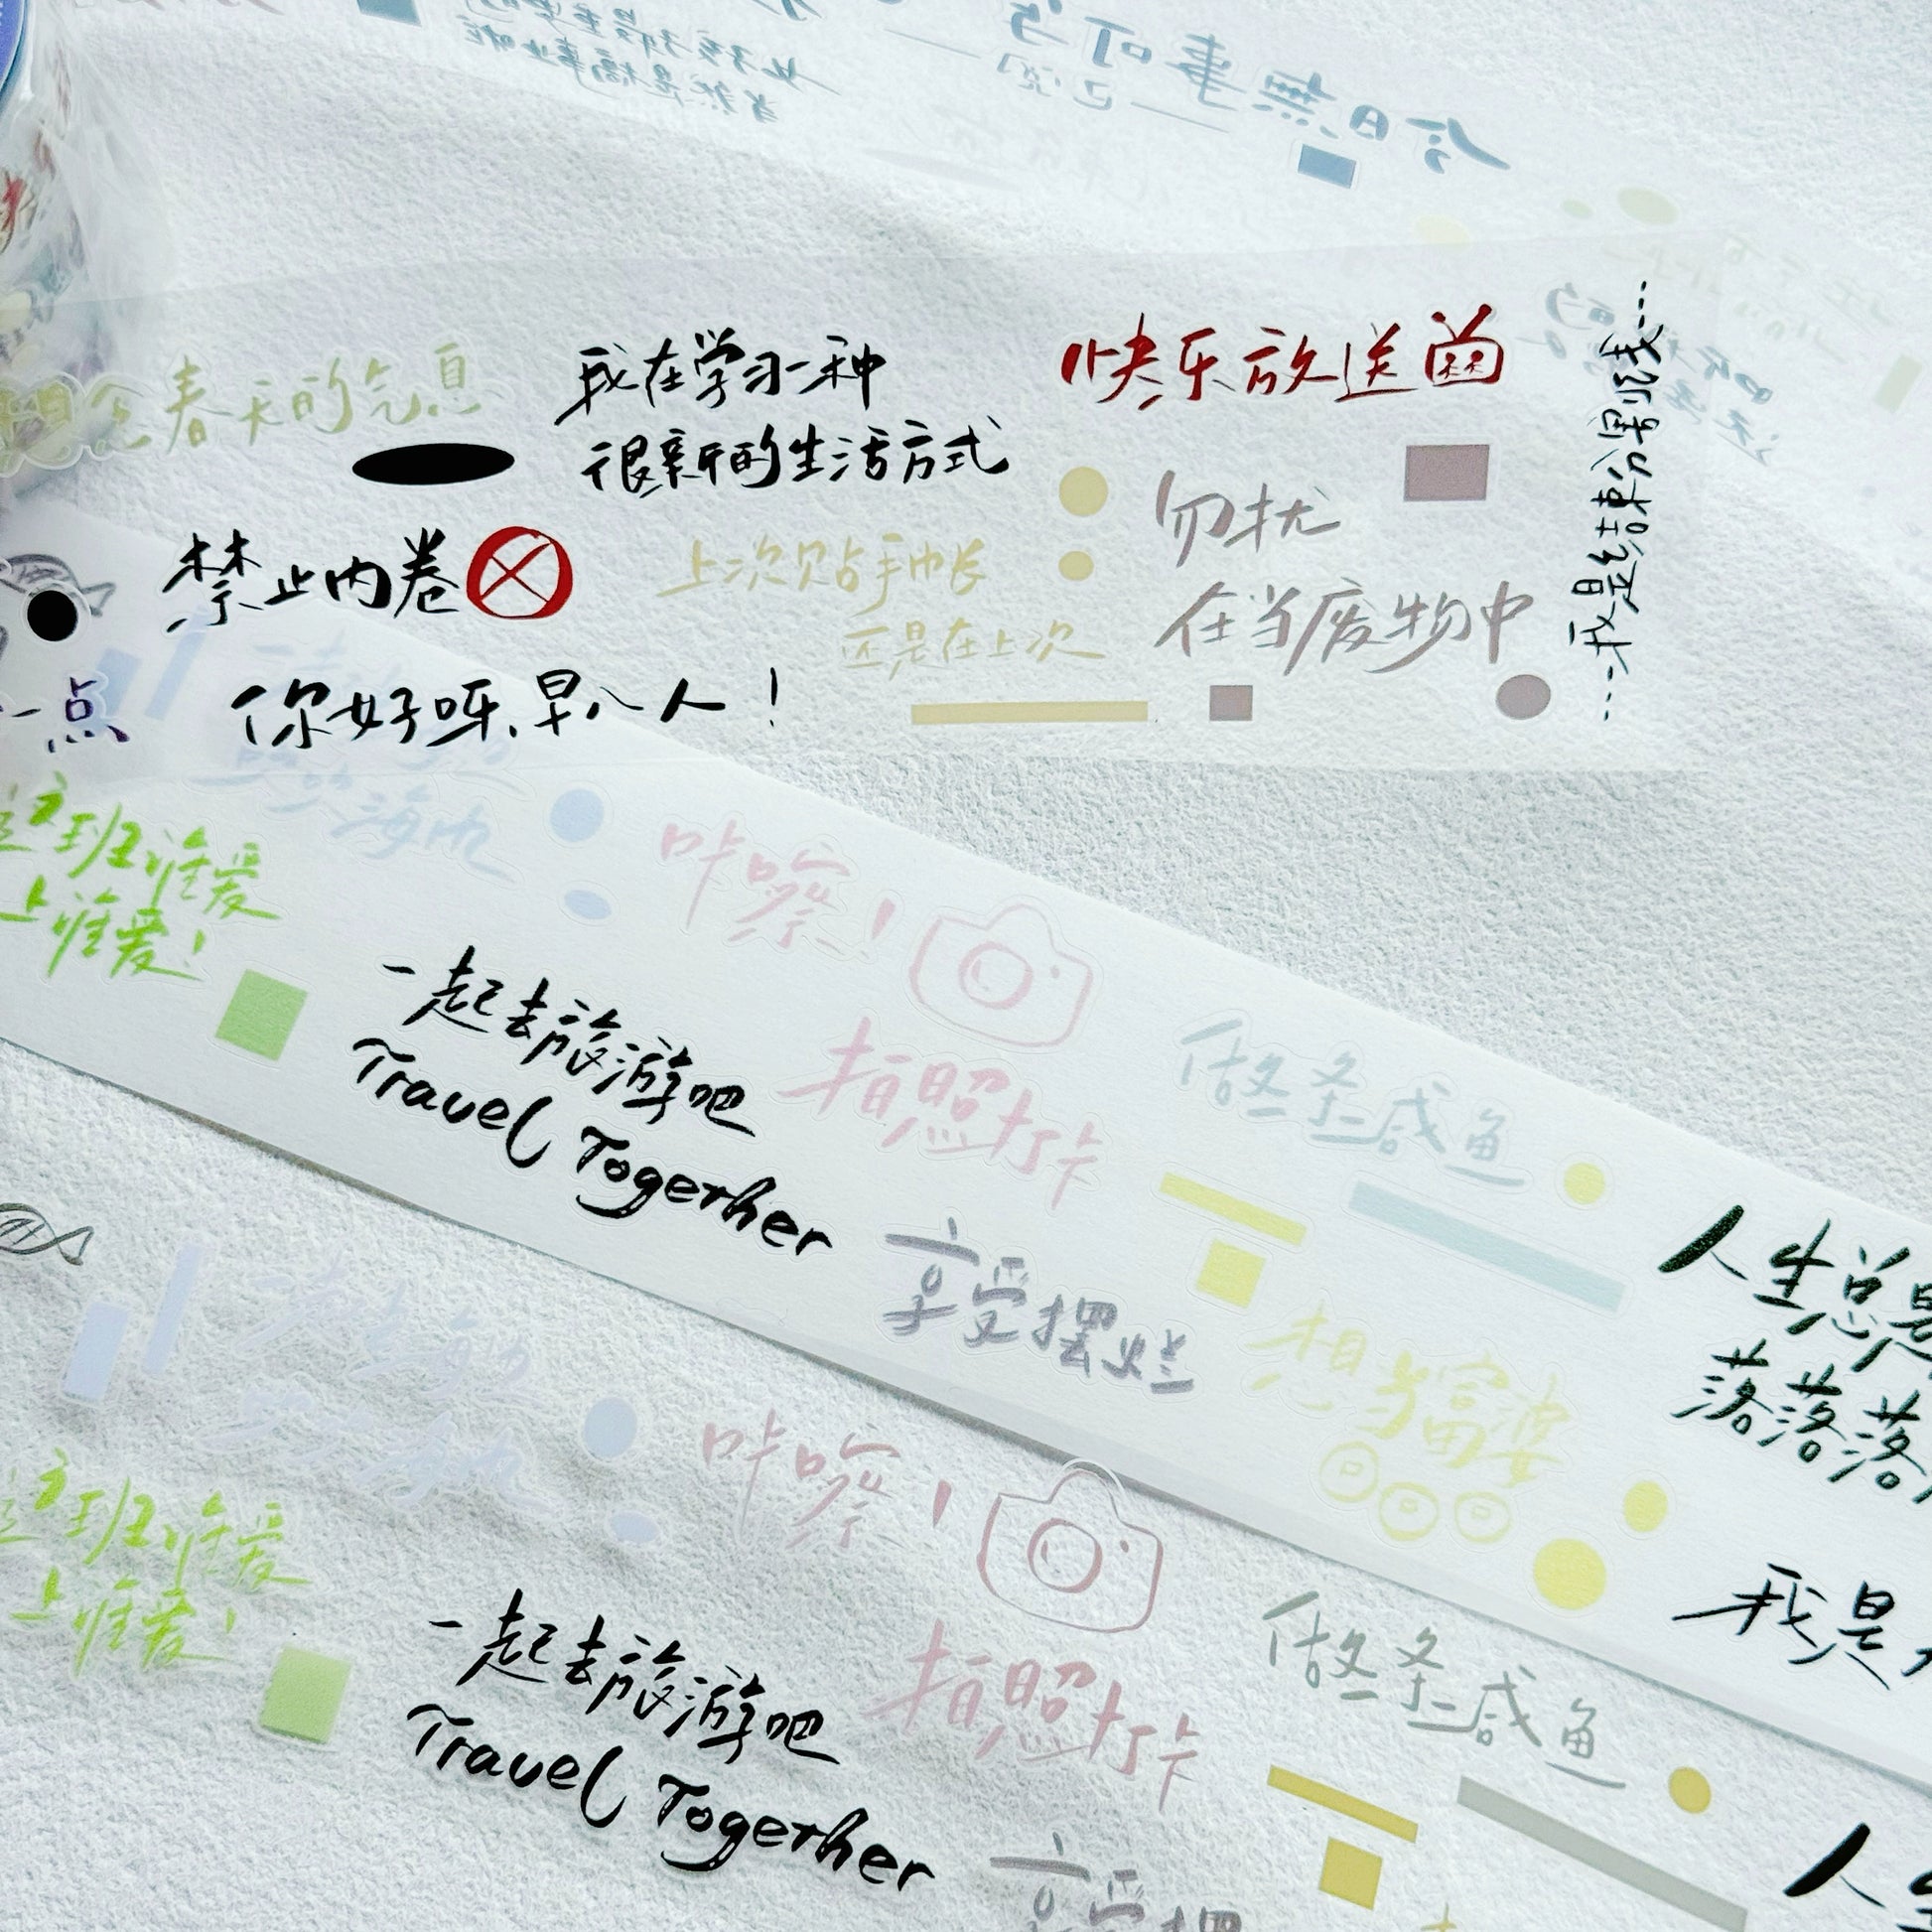 今日無事可当
女孩子最重要的
当然是搞事业啦
想念春天的气息
我在学习一种
很新的生活方式
快乐放送菌
禁止内卷
上次贴手帐
还是在上次
勿扰
在当废物中
我是结束分割线
你好呀,早八人!
一点
这班谁爱
上谁爱!
咔嚓!
拍照打卡
一起去旅游吧
Travel Together
做条咸鱼
享受摆烂
想当富婆
人生总是
落落落落
我是
这班谁爱
上谁爱!
咔嚓!
拍照打卡
一起去旅游吧
Travel Together
做条咸鱼
享受摆
人生